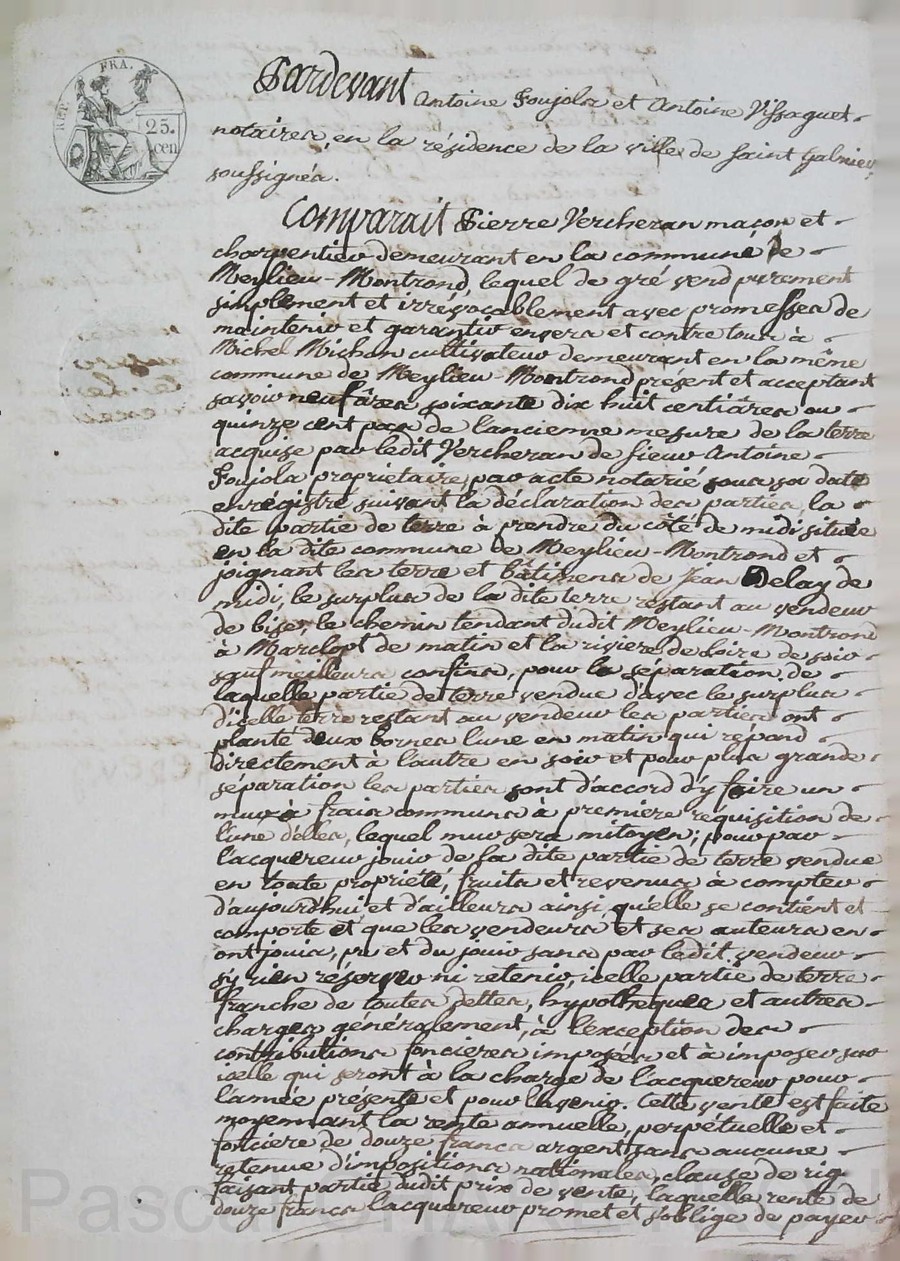 REP. FRA.
25.
cen
Pardevant
Antoine Poujola et Antoine Vissaguet
notaires en la résidence de la ville de Saint Galmier,
soussignés.
Comparait Pierre Vercheran maçon et
charpentier demeurant en la commune de
Meylieu-Montrond, lequel de gré vend purement
simplement et irrévocablement avec promesses de
maintenir et garantir envers et contre tous à
Michel Michon cultivateur demeurant en la même
commune de Meylieu-Montrond présent et acceptant
savoir neuf âres soixante dix huit centiâres ou
quinze cent pas de l'ancienne mesure de la terre
acquise par ledit Vercheran de sieur Antoine
Poujola propriétaire, par acte notarié sous sa date
enregistré suivant la déclaration des parties, la
dite partie de terre à prendre du coté de midi située
en la dite commune de Meylieu-Montrond et
joignant les terre et bâtimens de Jean Delay de
midi, le surplus de la dite terre restant au vendeur
de bise, le chemin tendant dudit Meylieu-Montrond
à Marclopt de matin et la riviere de Loire de soir
sauf meilleurs confins, pour la séparation de
laquelle partie de terre vendue d'avec le surplus
d'icelle terre restant au vendeur les parties ont
planté deux bornes l'une en matin qui répand
directement à l'autre en soir et pour plus grande
séparation les parties sont d'accord d'y faire un
mur à frais communs à première réquisition de
l'une d'elles, lequel mur sera mitoyen; pour par
l'acquereur jouir de la dite partie de terre vendue
en toute propriété, fruits et revenus à compter
d'aujourd'hui et d'ailleurs ainsi qu'elle se contient et
comporte et que les vendeurs et ses auteurs en
ont jouis, pu et du jouir sans par ledit vendeur
s'y rien réserver ni retenir, icelle partie de terre
franche de toutes dettes, hypotheques et autres
charges généralement, à l'exception des
contributions foncières imposées et à imposer sur
icelle qui seront à la charge de l'acquereur pour
l'année présente et pour l'avenir. Cette vente est faite
moyennant la rente annuelle, perpétuelle et
foncière de douze francs argent sans aucune
retenue d'impositions nationales, clause de rig.
faisant partie dudit prix de vente, laquelle rente de
douze francs l'acquereur promet et s'oblige de payer